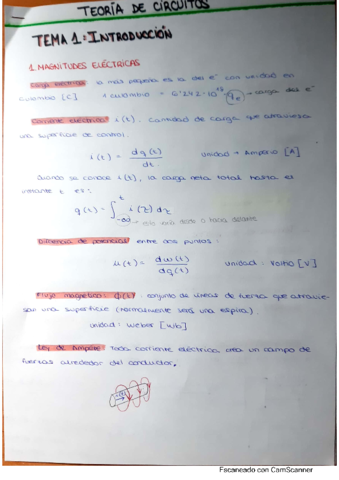 TEORÍA DE CIRCUITOS
TEMA 1: INTRODUCCIÓN
1. MAGNITUDES ELÉCTRICAS
Carga eléctrica: la más pequeña es la del e⁻ con unidad en
Culombio [C] 1 culombio = 6'242·10¹⁸ · qe → carga del e⁻
Corriente eléctrica: i(t). Cantidad de carga que atraviesa
una superficie de control.
i(t) = dq(t) / dt unidad → Amperio [A]
Cuando se conoce i(t), la carga neta total hasta el
instante t es:
q(t) = ∫ₜ₋∞ i(τ) dτ
Diferencia de potencial entre dos puntos:
u(t) = dw(t) / dq(t) unidad: Voltio [V]
Flujo magnético: φ(t): conjunto de líneas de fuerza que atravie-
san una superficie (normalmente será una espira).
unidad: Weber [Wb]
Ley de Ampère: Toda corriente eléctrica, crea un campo de
fuerzas alrededor del conductor.
i(t)
Escaneado con CamScanner